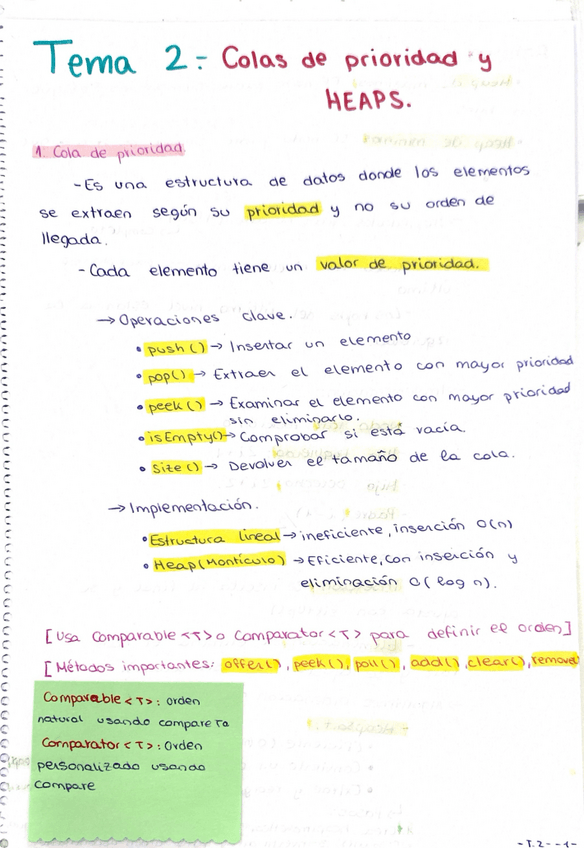 Tema 2 = Colas de prioridad y
HEAPS.
1. Cola de prioridad
-Es una estructura de datos donde los elementos
se extraen según su prioridad y no su orden de
llegada.
- Cada elemento tiene un valor de prioridad.
→ Operaciones clave.
• push() → Insertar un elemento
• pop() → Extraer el elemento con mayor prioridad
• peek() → Examinar el elemento con mayor prioridad
sin eliminarlo.
• isEmpty() → Comprobar si está vacía.
• Size() → Devolver el tamaño de la cola.
→ Implementación.
• Estructura lineal → ineficiente, inserción O(n)
• Heap (Montículo) → Eficiente, con inserción y
eliminación O(log n).
[Usa Comparable <T> o Comparator <T> para definir el orden]
[Métodos importantes: offer(), peek(), poll(), add(), clear(), remove
Comparable <T>: orden
natural usando compareTo
Comparator <T>: Orden
personalizado usando
compare
- T.2 - - 1 -